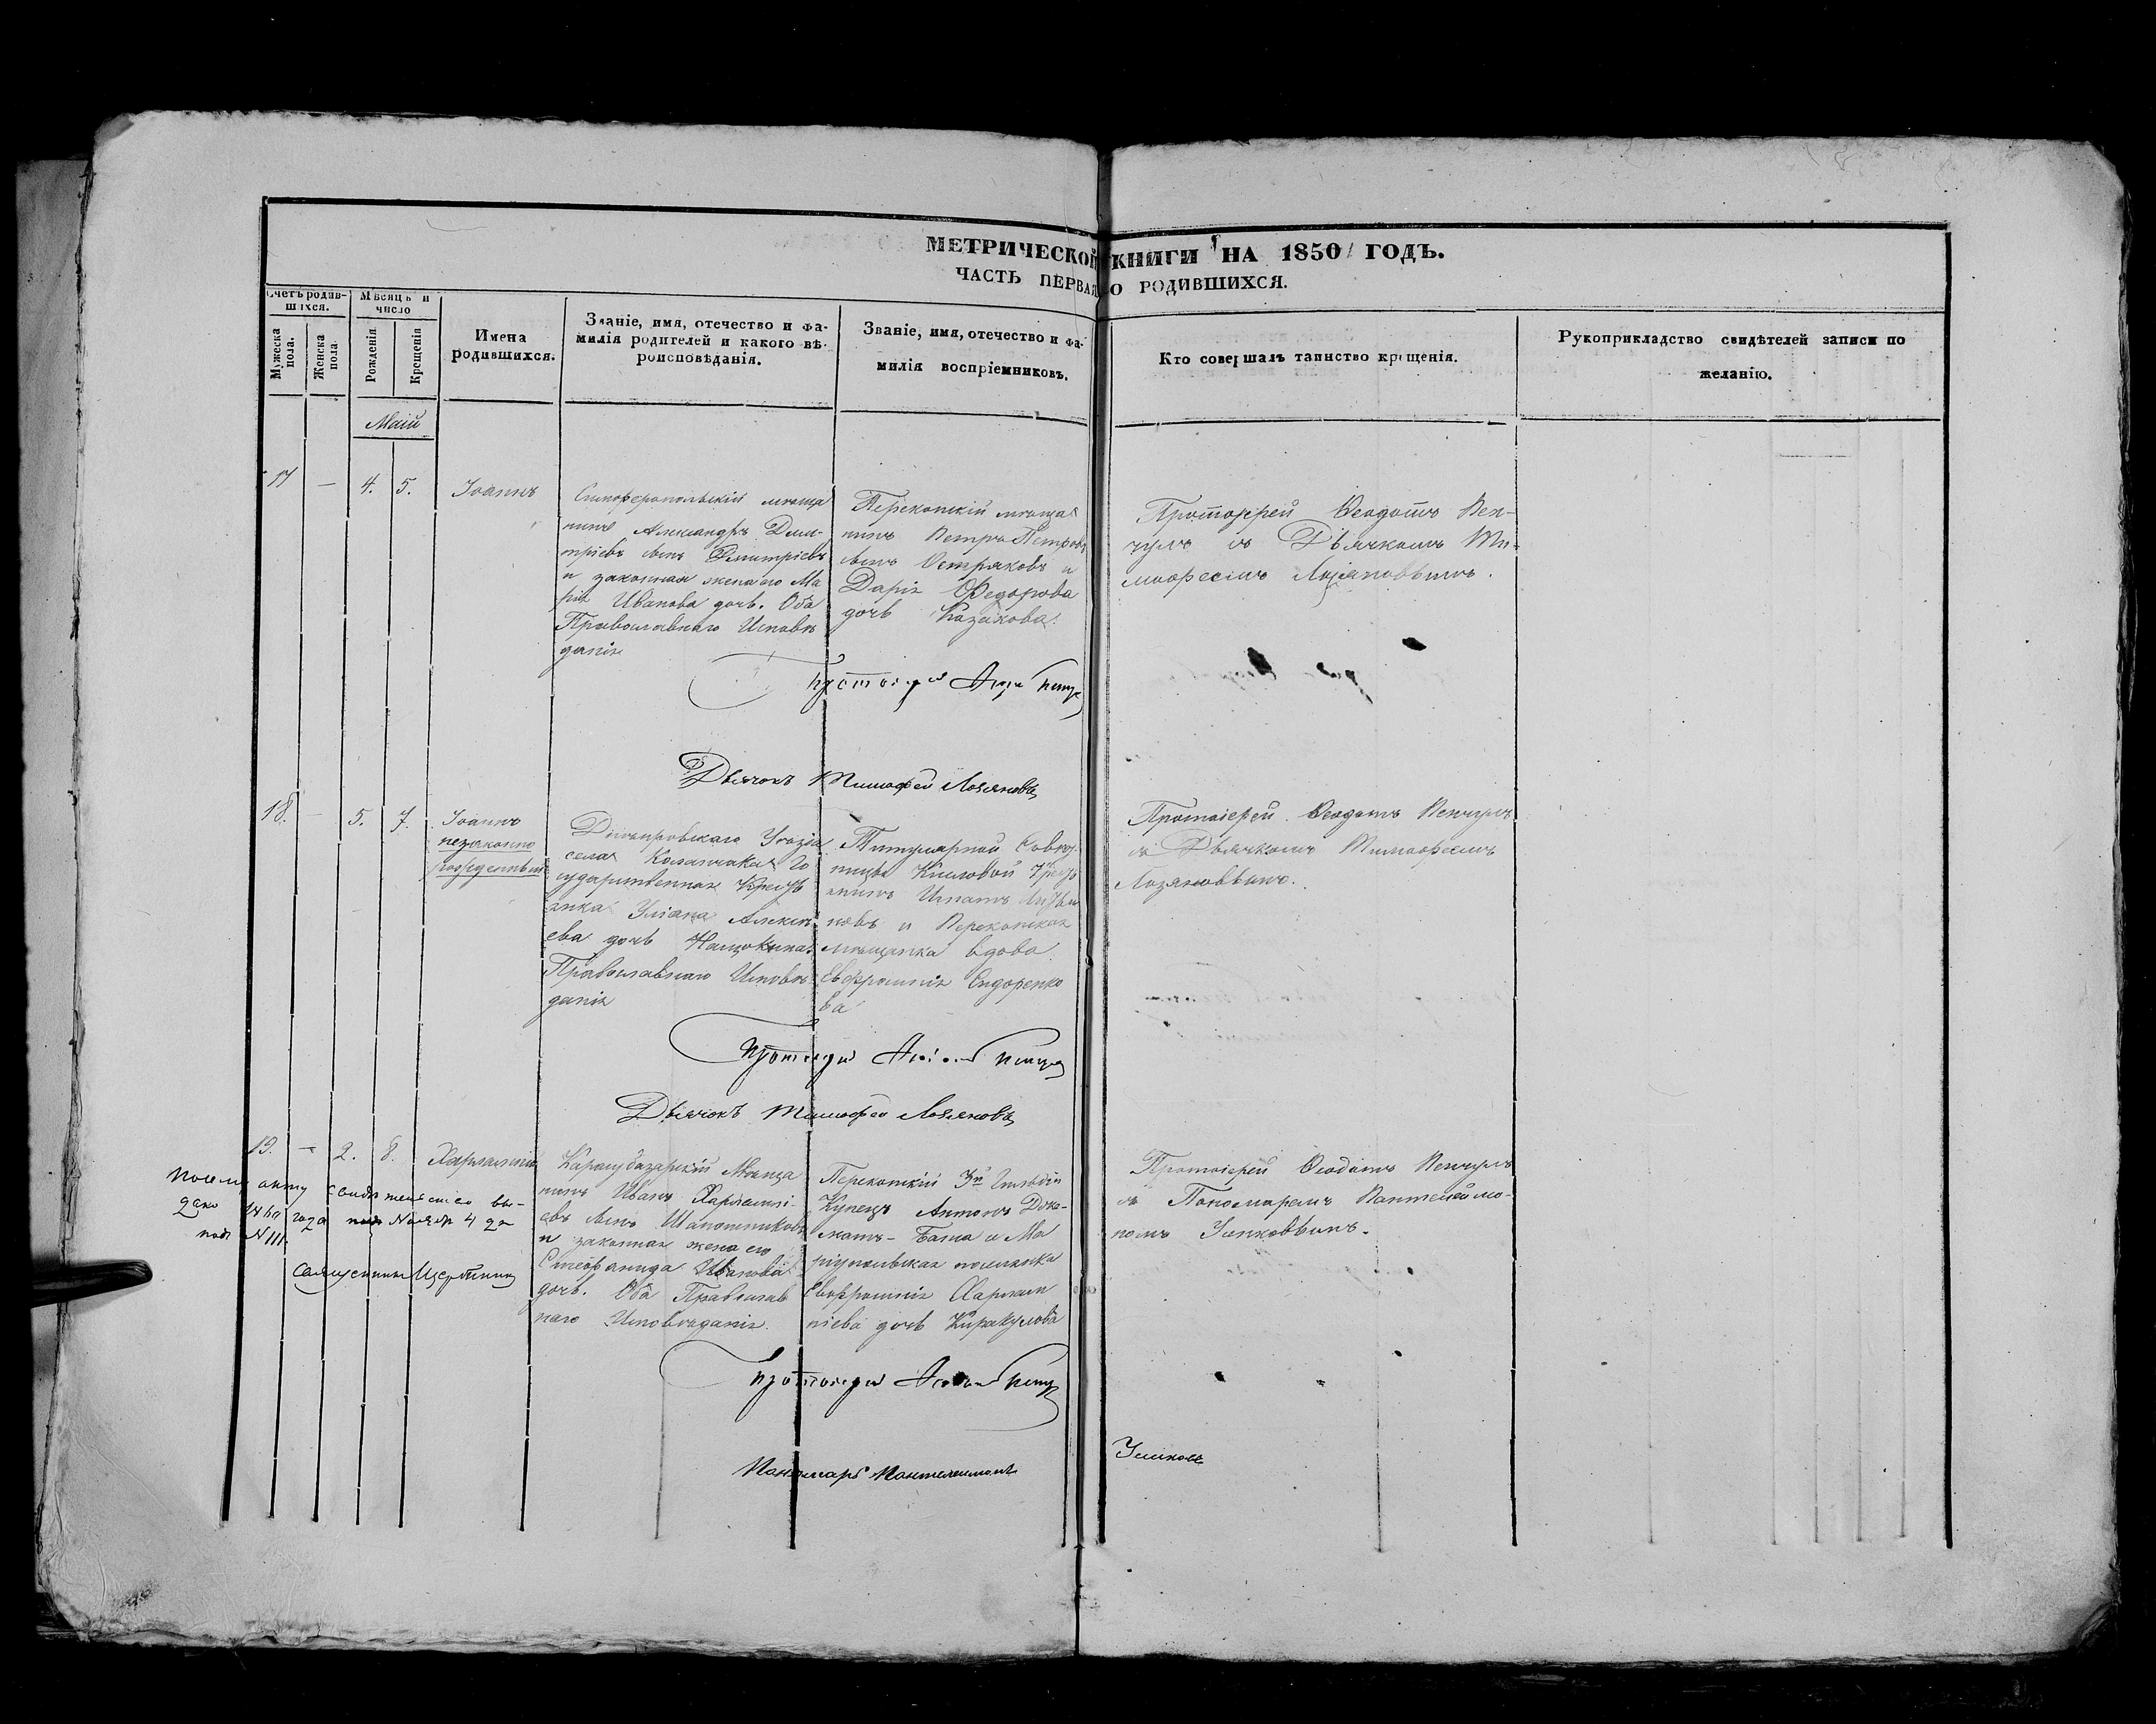 МЕТРИЧЕСКОЙ КНИГИ НА 1850 ГОДЪ.
ЧАСТЬ ПЕРВАЯ О РОДИВШИХСЯ.
Счетъ родившихся.
Мужеска пола.
Женска пола.
Мѣсяцъ и число
Рожденія
Крещенія
Имена
родившихся.
Званіе, имя, отечество и фа-
милія родителей и какого вѣ-
роисповѣданія.
Званіе, имя, отечество и фа-
милія воспріемниковъ.
Кто совершалъ таинство крещенія.
Рукоприкладство свидѣтелей записи по
желанію.
Маій
17 — 4. 5.
Іоаннъ
Симферопольскій мѣща
нинъ Александръ Дми-
тріевъ сынъ Димитріевъ
и законная жена его Ма
рія Иванова дочь. Оба
Православнаго Исповѣ
данія
Перекопскій мѣща
нинъ Петръ Петровъ
сынъ Остряковъ и
Дарія Федорова
дочь Казакова.
Протоіерей Ѳеодотъ Пен-
чулъ съ Дьячкомъ Ти-
моѳеемъ Лозяновымъ.
Протоіерей
Дьячокъ Тимофей Лозяновъ
18. — 5. 7.
Іоаннъ
незаконно
рожденный
Днѣпровскаго Уѣзда
села Каланчака Го
сударственная Кресть
янка Уліана Алексѣ
ева дочь Нащокина
Православнаго Исповѣ
данія
Титулярной Совѣт
ницы Кисловой Кресть
янинъ Игнатъ
новъ и Перекопская
мѣщанка вдова
Евфросинія Сидоренко
ва
Протоіерей Ѳеодотъ Пенчулъ
съ Дьячкомъ Тимоѳеемъ
Лозяновымъ.
Протоіерей
Дьячокъ Тимофей Лозяновъ
19. — 2. 8.
Харлампій
Карасубазарскій Мѣща
нинъ Иванъ Харлампі-
евъ сынъ Шапошниковъ
и законная жена его
Стефанида Иванова
дочь. Оба Православ
наго Исповѣданія.
Перекопскій 3й Гильдіи
Купецъ Антонъ
Баша и Ма
ріупольская поселянка
Евфросинія Харлам
піева дочь Каракулова
Протоіерей Ѳеодотъ Пенчулъ
съ Пономаремъ Пантелеймо-
номъ Ушковымъ.
По сему акту свидѣтельство вы-
дано года Ноября 4 дн
подъ N 111
Священникъ
Протоіерей
Пономарь Пантелеимонъ
Ушковъ